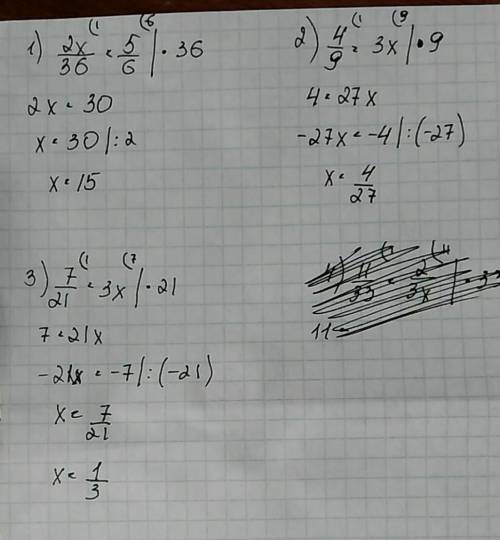 1) 2x/36 (1 = 5/6 (6 | · 36
2x = 30
x = 30 | : 2
x = 15
2) 4/9 (1 = 3x (9 | · 9
4 = 27x
-27x = -4 | : (-27)
x = 4/27
3) 7/21 (1 = 3x (7 | · 21
7 = 21x
-21x = -7 | : (-21)
x = 7/21
x = 1/3
4) 11/33 = 2/3x (11 | · 33
11 =